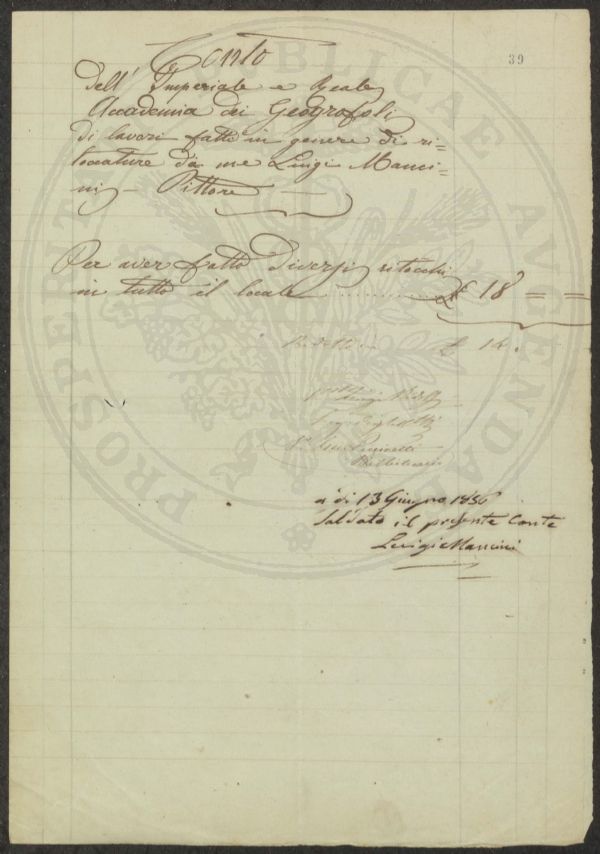 39
Conto
dell' Imperiale e Reale
Accademia dei Geogrofoli
di lavori fatti in genere di ri=
toccature da me Luigi Manci=
ni - Pittore
Per aver fatto Diversi ritocchi
in tutto il locale ......... £ 18 = =
£ 14.
a dì 13 Giugno 1856
Saldato il presente Conte
Luigi Mancini
PROSPERITATI PUBLICAE AUGENDAE